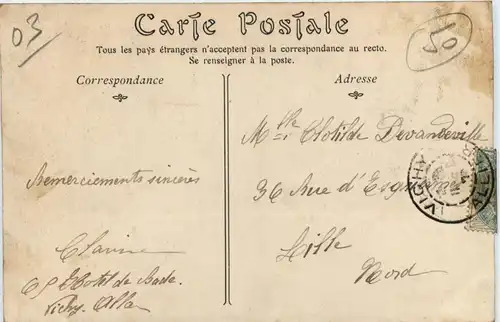 03
50
Carte Postale
Tous les pays étrangers n'acceptent pas la correspondance au recto.
Se renseigner à la poste.
Correspondance
Adresse
Mlle Clotilde Devandeville
36 Rue d'
Lille
Nord
Remerciements sincères
Hotel de Bade
Vichy. Allier
VICHY
ALLIER